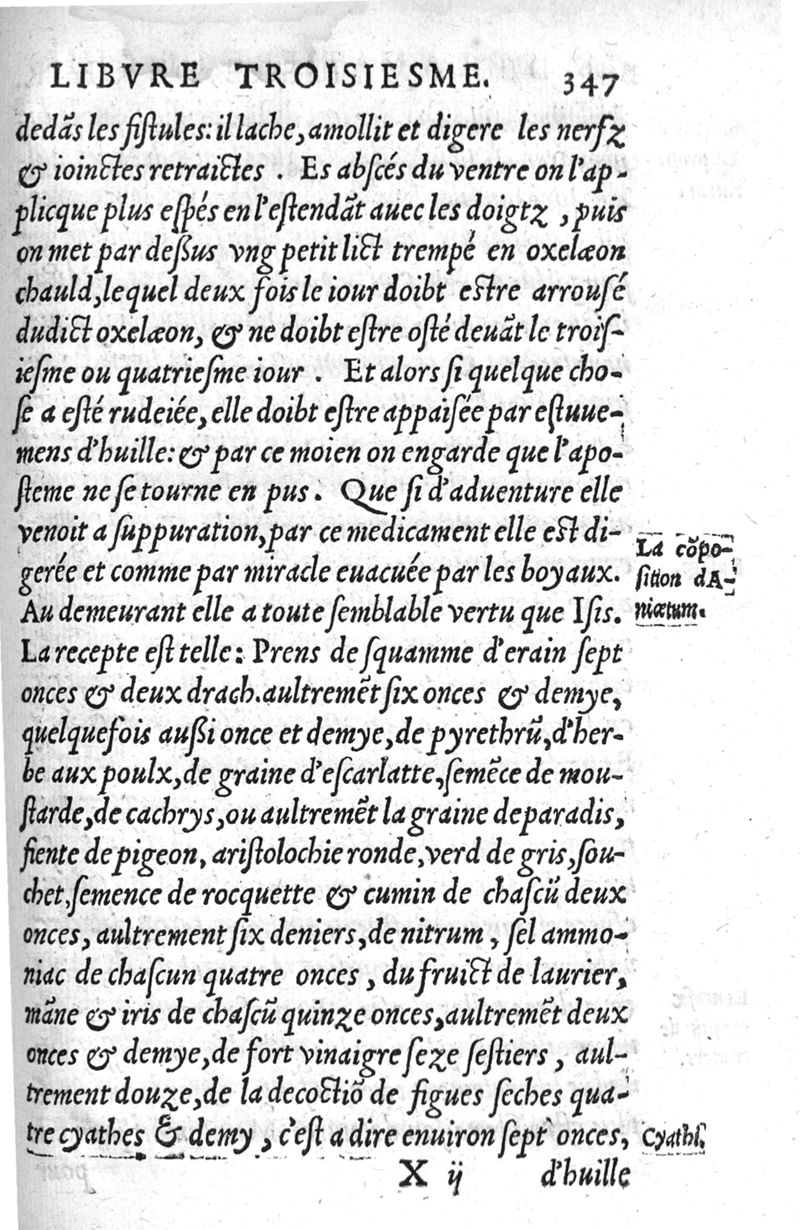 LIBVRE TROISIESME. 347
dedãs les fistules: il lache, amollit et digere les nerfz
& ioinctes retraictes . Es abscés du ventre on l'ap-
plicque plus espés en l'estendãt auec les doigtz , puis
on met par dessus vng petit lict trempé en oxelæon
chauld, lequel deux fois le iour doibt estre arrousé
dudict oxelæon, & ne doibt estre osté deuãt le trois-
iesme ou quatriesme iour . Et alors si quelque cho-
se a esté rudeiée, elle doibt estre appaisée par estuue-
mens d'huille: & par ce moien on engarde que l'apo-
steme ne se tourne en pus. Que si d'aduenture elle
venoit a suppuration, par ce medicament elle est di-
gerée et comme par miracle euacuée par les boyaux.
Au demeurant elle a toute semblable vertu que Isis.
La cõpo-
sition dA-
niætum.
La recepte est telle: Prens de squamme d'erain sept
onces & deux drach. aultremẽt six onces & demye,
quelquefois aussi once et demye, de pyrethrũ, d'her-
be aux poulx, de graine d'escarlatte, semẽce de mou-
starde, de cachrys, ou aultremẽt la graine de paradis,
fiente de pigeon, aristolochie ronde, verd de gris, sou-
chet, semence de rocquette & cumin de chascũ deux
onces, aultrement six deniers, de nitrum , sel ammo-
niac de chascun quatre onces , du fruict de laurier,
mãne & iris de chascũ quinze onces, aultremẽt deux
onces & demye, de fort vinaigre seze sestiers , aul-
trement douze, de la decoctiõ de figues seches qua-
tre cyathes & demy , c'est a dire enuiron sept onces,
Cyathi.
X ij d'huille